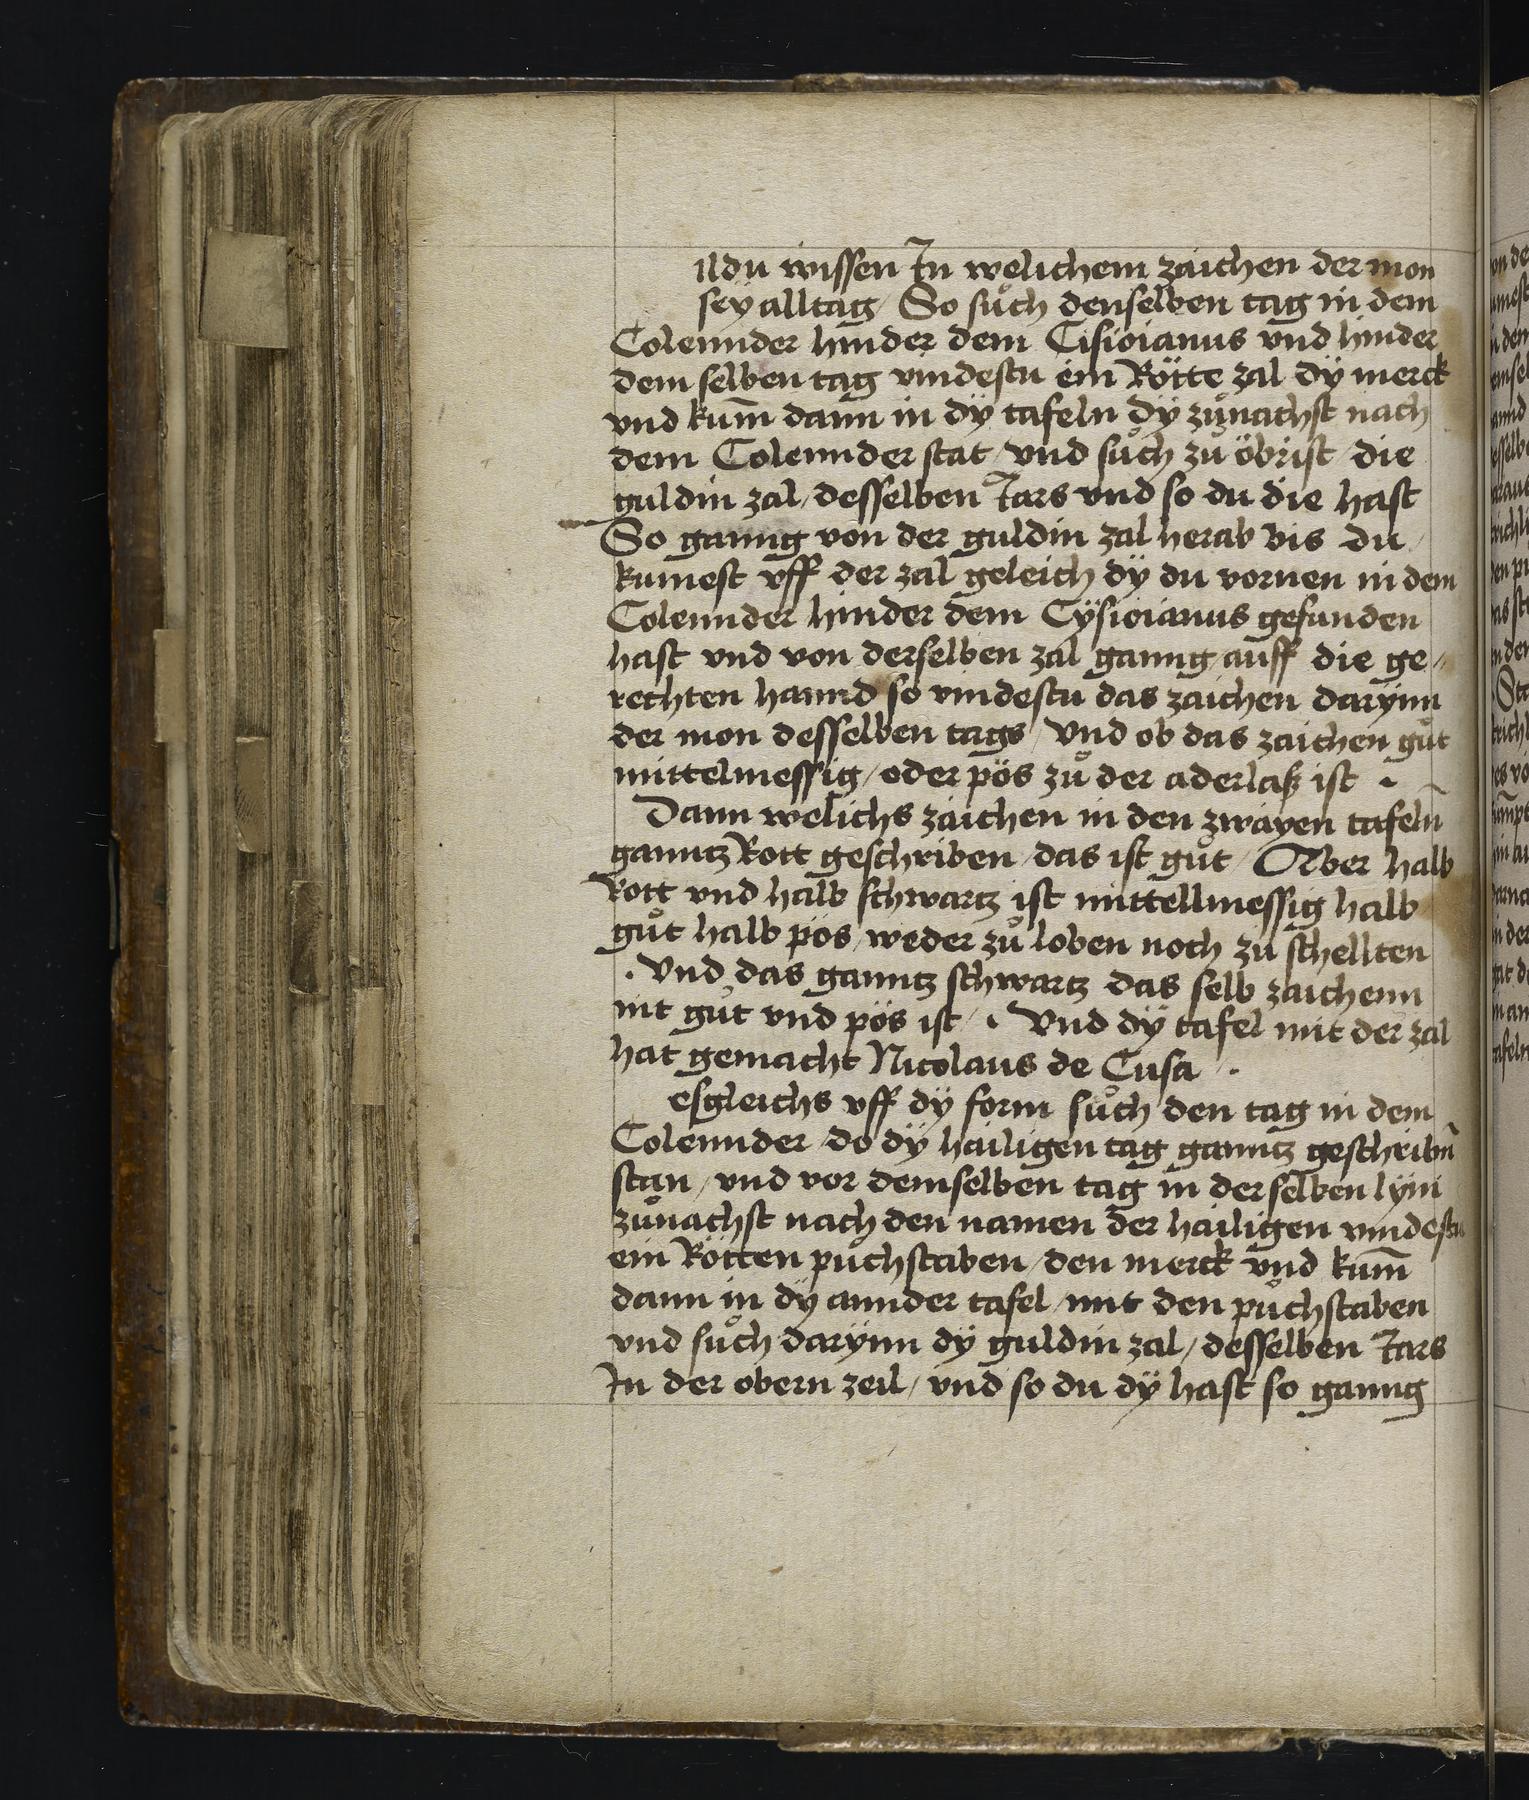 Ildu wissen In welichem zaichen der mon
sey alltag / So sůch denselben tag in dem
Colennder hinder dem Cisioianus vnd hinder
dem selben tag vindestu ein Rötte zal dÿ merck
vnd kum̄ dann in dÿ tafeln dÿ zůnachst nach
dem Colennder stat / vnd sůch zů öbrist die
guldin zal / desselben Iars vnd so du die hast
So ganng von der guldin zal herab bis du
kumest vff der zal geleich dÿ du vornen in dem
Colennder hinder dem Cÿsioianus gefunden
hast vnd von derselben zal ganng auff die ge⸗
rechten hannd so vindestu das zaichen darynn
der mon desselben tags / vnd ob das zaichen gůt
mittelmessig / oder pös zů der aderlaß ist ·
Dann welichs zaichen in den zwayen tafeln̄
ganntz Rott geschriben / das ist gůt / Aber halb
Rott vnd halb schwartz ist mittellmessig halb
gůt halb pös / weder zů loben noch zů schellten
· vnd das ganntz schwartz das selb zaichenn
nit gůt vnd pös ist / · vnd dÿ tafel mit der zal
hat gemacht Nicolaus de Cusa ·
esgleichs vff dÿ form sůch den tag in dem
Colennder / do dÿ hailigen tag ganntz geschribn̄
stan / vnd vor demselben tag in der selben lyni
zůnachst nach den namen der hailigen vindestu
ein Rötten půchstaben / den merck vnd kum̄
dann in dÿ annder tafel / mit den půchstaben
vnd sůch darynn dÿ guldin zal / desselben Iars
In der obern zeil / vnd so du dÿ hast so ganng